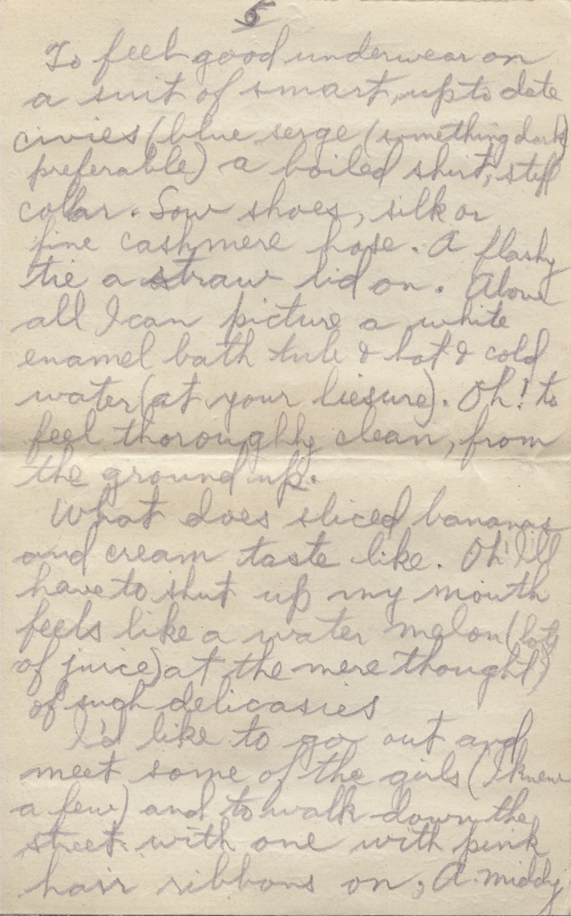 5
To feel good underwear on
a suit of smart, up to date
civies (blue serge (something dark)
preferable) a boiled shirt, stiff
collar. Low shoes, silk or
fine cashmere hose. A flashy
tie a straw lid on. Above
all I can picture a white
enamel bath tub & hot & cold
water (at your liesure). Oh! to
feel thoroughly clean, from
the ground up.
What does sliced bananas
and cream taste like. Oh! I'll
have to shut up my mouth
feels like a water melon (lots
of juice) at the mere thought)
of such delicasies
I'd like to go out and
meet some of the girls (I knew
a few) and to walk down the
street with one with pink
hair ribbons on, A middy